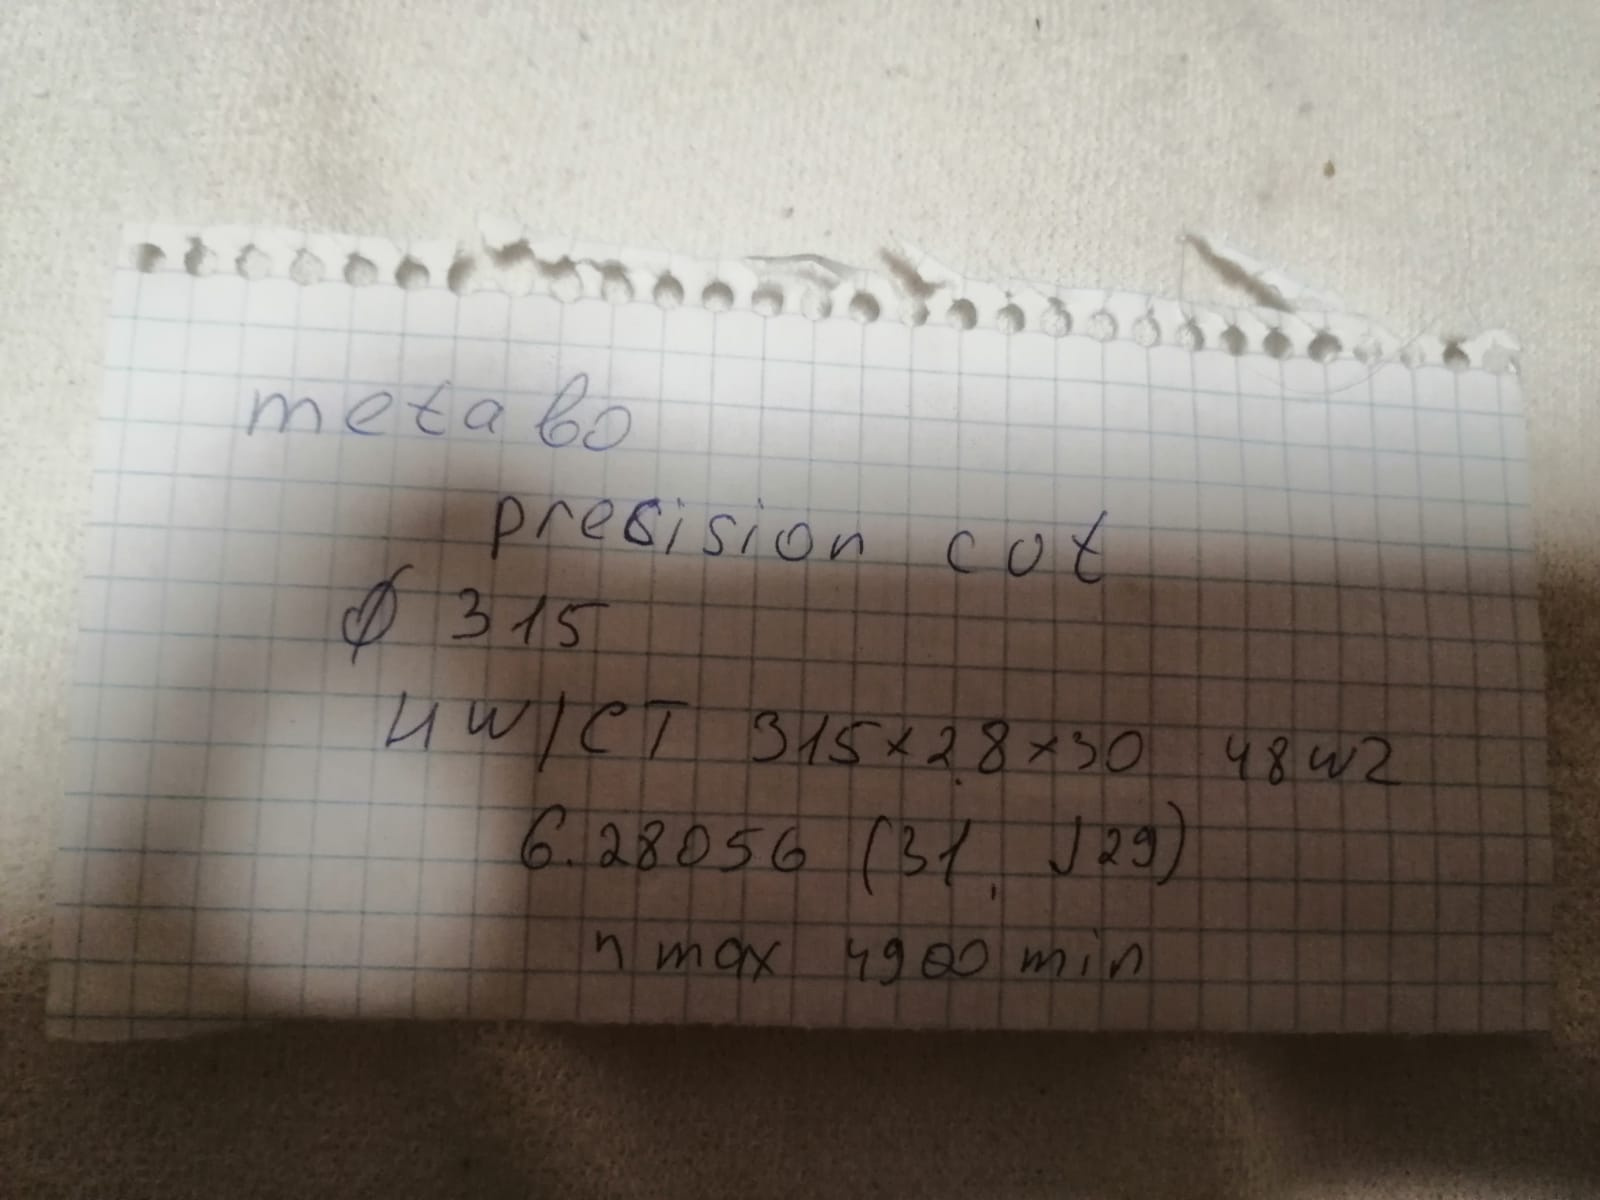 metabo
precision cut
Ø 315
HW/CT 315x2.8x30 48wz
6.28056 (31. J29)
n max 4900 min